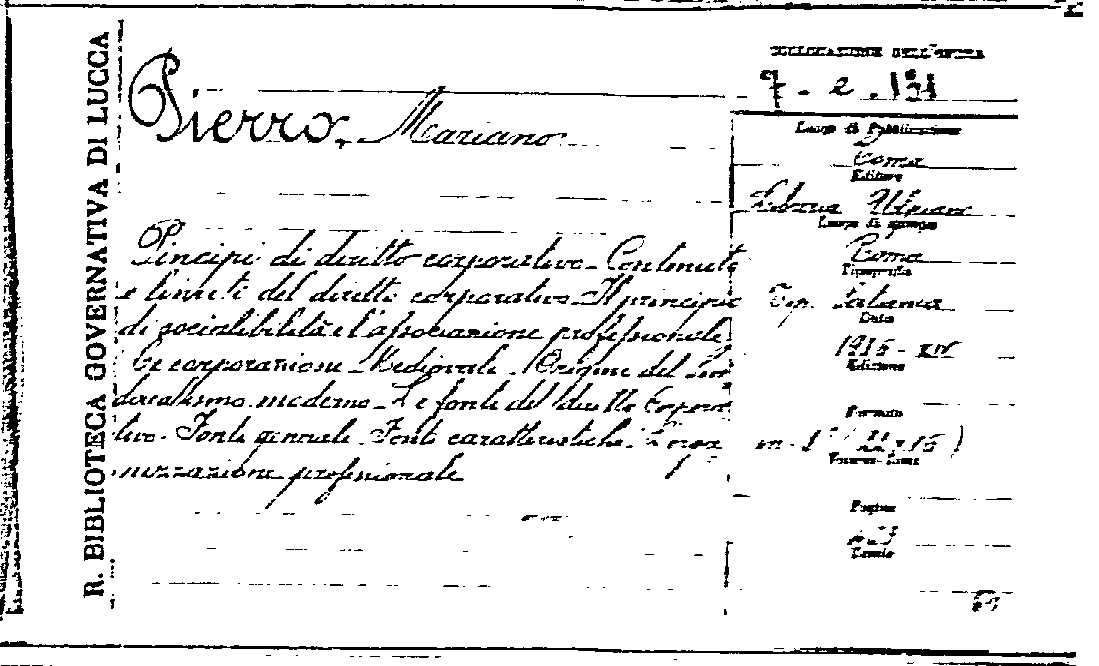 R. BIBLIOTECA GOVERNATIVA DI LUCCA
COLLOCAZIONE DELL'OPERA
7 - 2 . 131
Pierro, Mariano
Luogo di Pubblicazione
Roma
Editore
Libreria Ulpiano
Luogo di stampa
Roma
Tipografia
Tip.
Data
XIV
Edizione
Formato
Pagine
Principi di diritto corporativo - Contenuto
e limiti del diritto corporativo - Il principio
di sociabilità e l'associazione professionale,
corporazione Medievale. Origine del Sin
dacalismo moderno - Le fonti del diritto Corpora
tivo. Fonti generali. Fonti caratteristiche. L'orga
nizzazione professionale